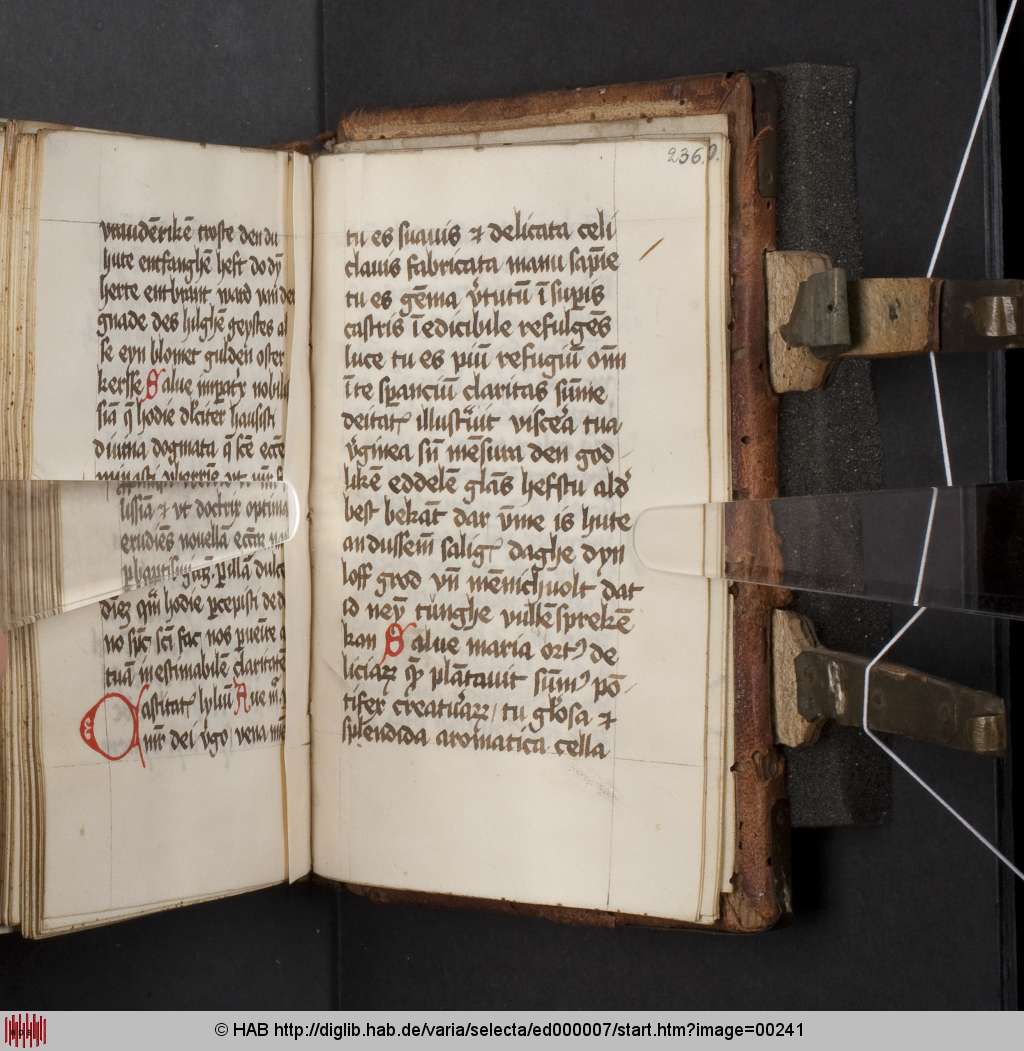 vraudērikē troste den du
hute entfanghē heft do dÿ
herte entbrant ward van der
gnade des hilghē geystes al
se eyn blomer gulden oster
kersse Salue imp̄atr̄x nobilis
siā q̄ hodie dl̄citer hausisti
diuina dogmata q̄ sc̄e ecc̄e
lissiā ⁊ vt doctrix optima
erudiēs nouellā ecc̄iā
diez qm̄ hodie p̄cepisti de
no sp̄c sc̄i fac nos pueīre
tuā inestimabilē claritatē
Castitatꝭ lyliū Aue mr̄a
mr̄ dei v̓go vera
236.
tu es suauis ⁊ delicata celi
clauis fabricata manu sapīe
tu es gēma v̓tutū ī sup̄is
castris īedicibile refulgēs
luce tu es piū refugiū om̄i
ī te sp̄anciū claritas sūme
deitatꝭ illustr̄uit viscēa tua
v̓ginea sū mēsura den god
likē eddelē glās hefstu ald̓
best bekāt dar v̄me is hute
an dussem̄ saligꝭ daghe dyn
loff grod vn̄ mēnichuolt dat
id neȳ tūnghe vullēsprekē
kan Salue maria ort⁹ de
liciaꝝ quē plātauit sūm⁹ pō
tifex creatur̄aꝝ / tu gl̓osa ⁊
splendida aromatica cella
© HAB http://diglib.hab.de/varia/selecta/ed000007/start.htm?image=00241